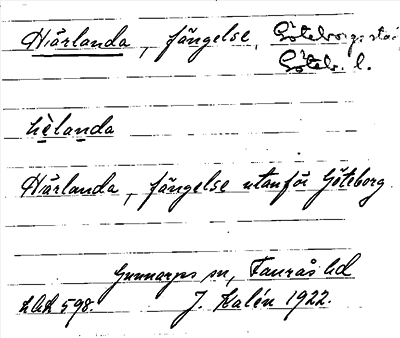 Härlanda, fängelse, Göteborgs sta
Göteb. l.
hèlanda
Härlanda, fängelse utanför Göteborg.
Gunnarps sn, Faurås hd
598. J. Kalén 1922.